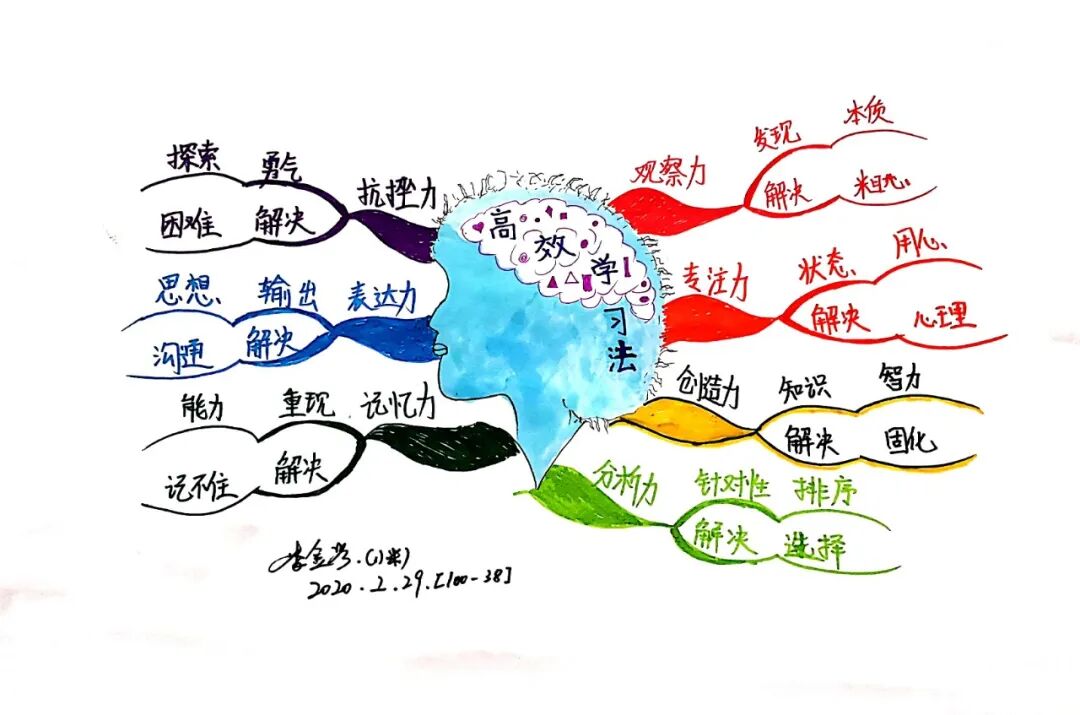 高效学习法
观察力
发现
本质
解决
粗心
专注力
状态
用心
解决
心理
创造力
知识
智力
解决
固化
分析力
针对性
排序
解决
选择
记忆力
重现
能力
解决
记不住
表达力
输出
思想
解决
沟通
抗挫力
勇气
探索
解决
困难
2020.2.29.[100-38]